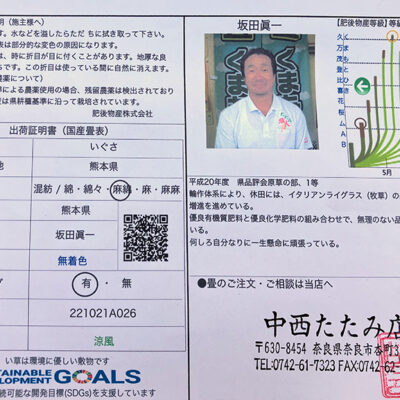 明（施主様へ）
す。水などを溢したらただ ちに拭き取って下さい。
表は部分的な変色の原因になります。
は、時に折目が目に付くことがあります。地厚な良
らです。この折目は使っている間に自然に消えます。
農薬について）
準による農薬使用の場合、残留農薬は検出されており
度は県耕種基準に沿って栽培されています。
肥後物産株式会社
出荷証明書（国産畳表）
いぐさ
地 熊本県
混紡 / 綿・綿々・麻綿・麻・麻麻
熊本県
坂田眞一
無着色
有 ・ 無
221021A026
涼風
い草は環境に優しい敷物です
SUSTAINABLE
DEVELOPMENT GOALS
続可能な開発目標(SDGs)を支援しています
坂田眞一
平成20年度 県品評会原草の部、1等
輪作体系により、休田には、イタリアンライグラス（牧草）の
増進を進めている。
優良有機質肥料と優良化学肥料の組み合わせで、無理のない品
いる。
何しろ自分なりに一生懸命に頑張っている。
●畳のご注文・ご相談は当店へ
中西たたみ店
〒630-8454 奈良県奈良市杏町3
TEL:0742-61-7323 FAX:0742-62-
【肥後物産等級】
等級
久 く
万 ま
登 も
比 と
喜 ひ
花 さ
桜 き
ム
A
B
5月